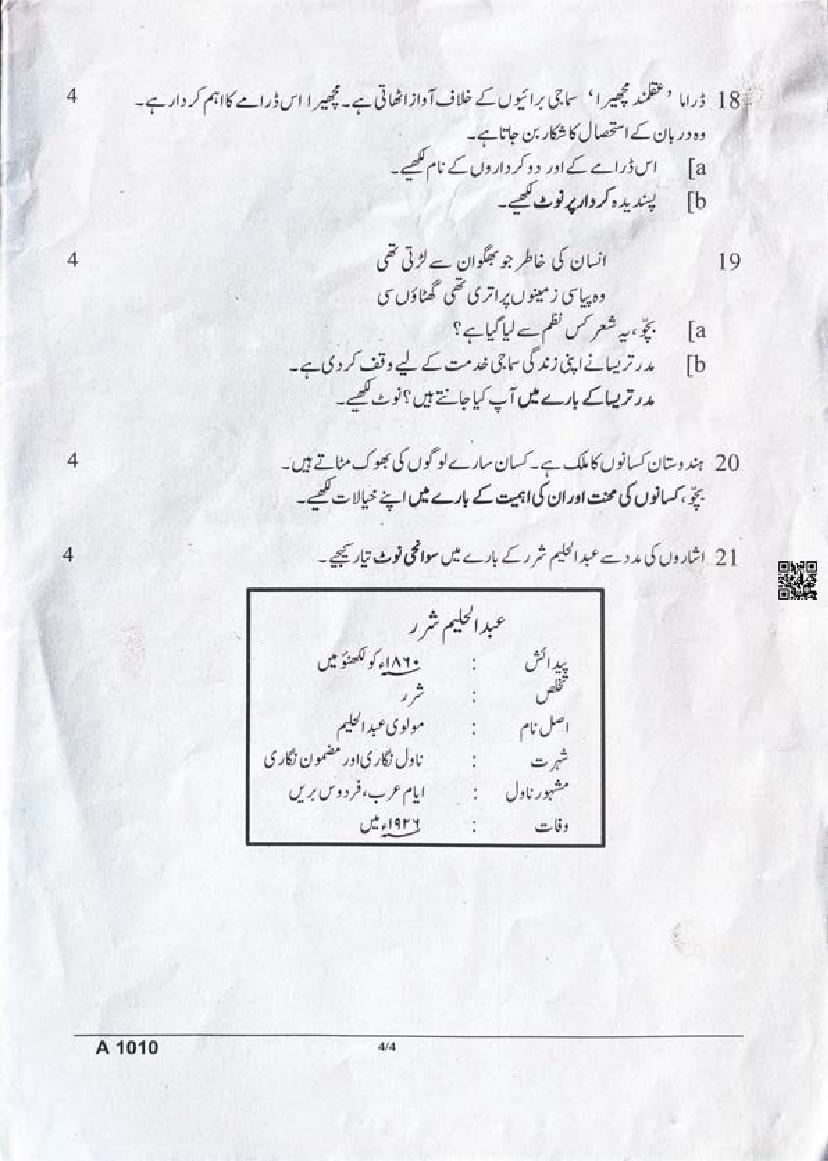 18 ڈراما ’عقلمند مچھیرا‘ سماجی برائیوں کے خلاف آواز اٹھاتی ہے۔ مچھیرا اس ڈرامے کا اہم کردار ہے۔ 4
وہ دربان کے استحصال کا شکار بن جاتا ہے۔
[a اس ڈرامے کے اور دو کرداروں کے نام لکھیے۔
[b پسندیدہ کردار پر نوٹ لکھیے۔
19 انسان کی خاطر جو بھگوان سے لڑتی تھی 4
وہ پیاسی زمینوں پر اتری تھی گھٹاؤں سی
[a بچّو، یہ شعر کس نظم سے لیا گیا ہے؟
[b مدر تریسا نے اپنی زندگی سماجی خدمت کے لیے وقف کر دی ہے۔
مدر تریسا کے بارے میں آپ کیا جانتے ہیں؟ نوٹ لکھیے۔
20 ہندوستان کسانوں کا ملک ہے۔ کسان سارے لوگوں کی بھوک مٹاتے ہیں۔ 4
بچّو، کسانوں کی محنت اور ان کی اہمیت کے بارے میں اپنے خیالات لکھیے۔
21 اشاروں کی مدد سے عبدالحلیم شرر کے بارے میں سوانحی نوٹ تیار کیجیے۔ 4
عبدالحلیم شرر
پیدائش : ۱۸۶۰ء کو لکھنؤ میں
تخلص : شرر
اصل نام : مولوی عبدالحلیم
شہرت : ناول نگاری اور مضمون نگاری
مشہور ناول : ایام عرب، فردوس بریں
وفات : ۱۹۲۶ء میں
A 1010 4/4